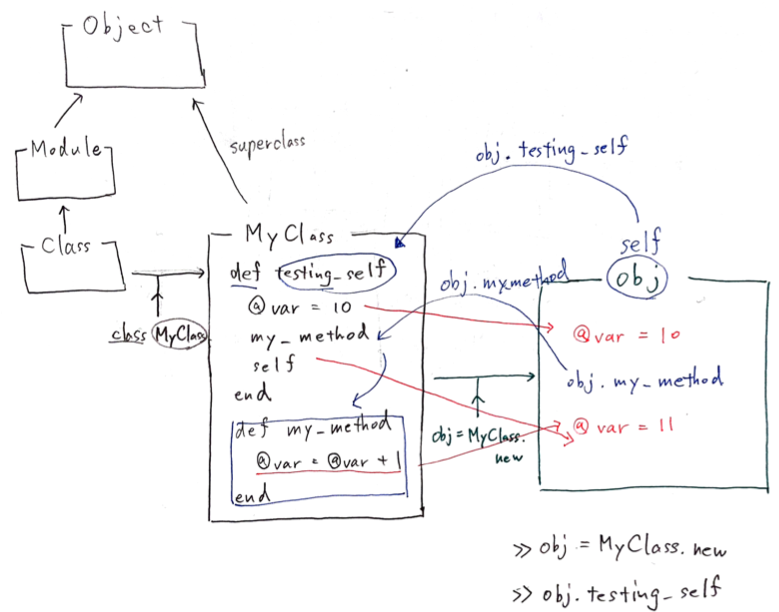 Object
Module
superclass
Class
class MyClass
MyClass
def testing_self
@var = 10
my_method
self
end
def my_method
@var = @var + 1
end
obj.testing_self
self
obj
obj.mymethod
@var = 10
obj.my_method
@var = 11
obj = MyClass.
new
>> obj = MyClass.new
>> obj.testing_self